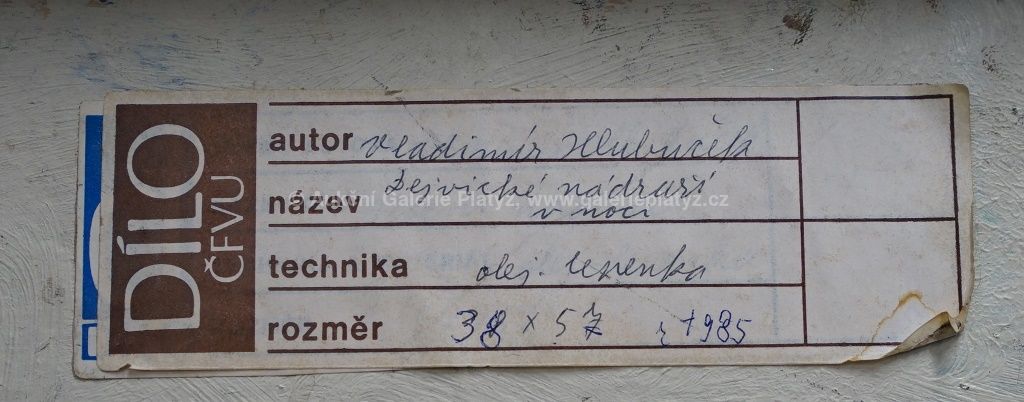 DÍLO
ČFVU
autor Vladimír Hlubuček
název Dejvické nádraží
v noci
© Aukční Galerie Platýz, www.galerieplatyz.cz
technika olej. lepenka
rozměr 38 x 57 r 1985